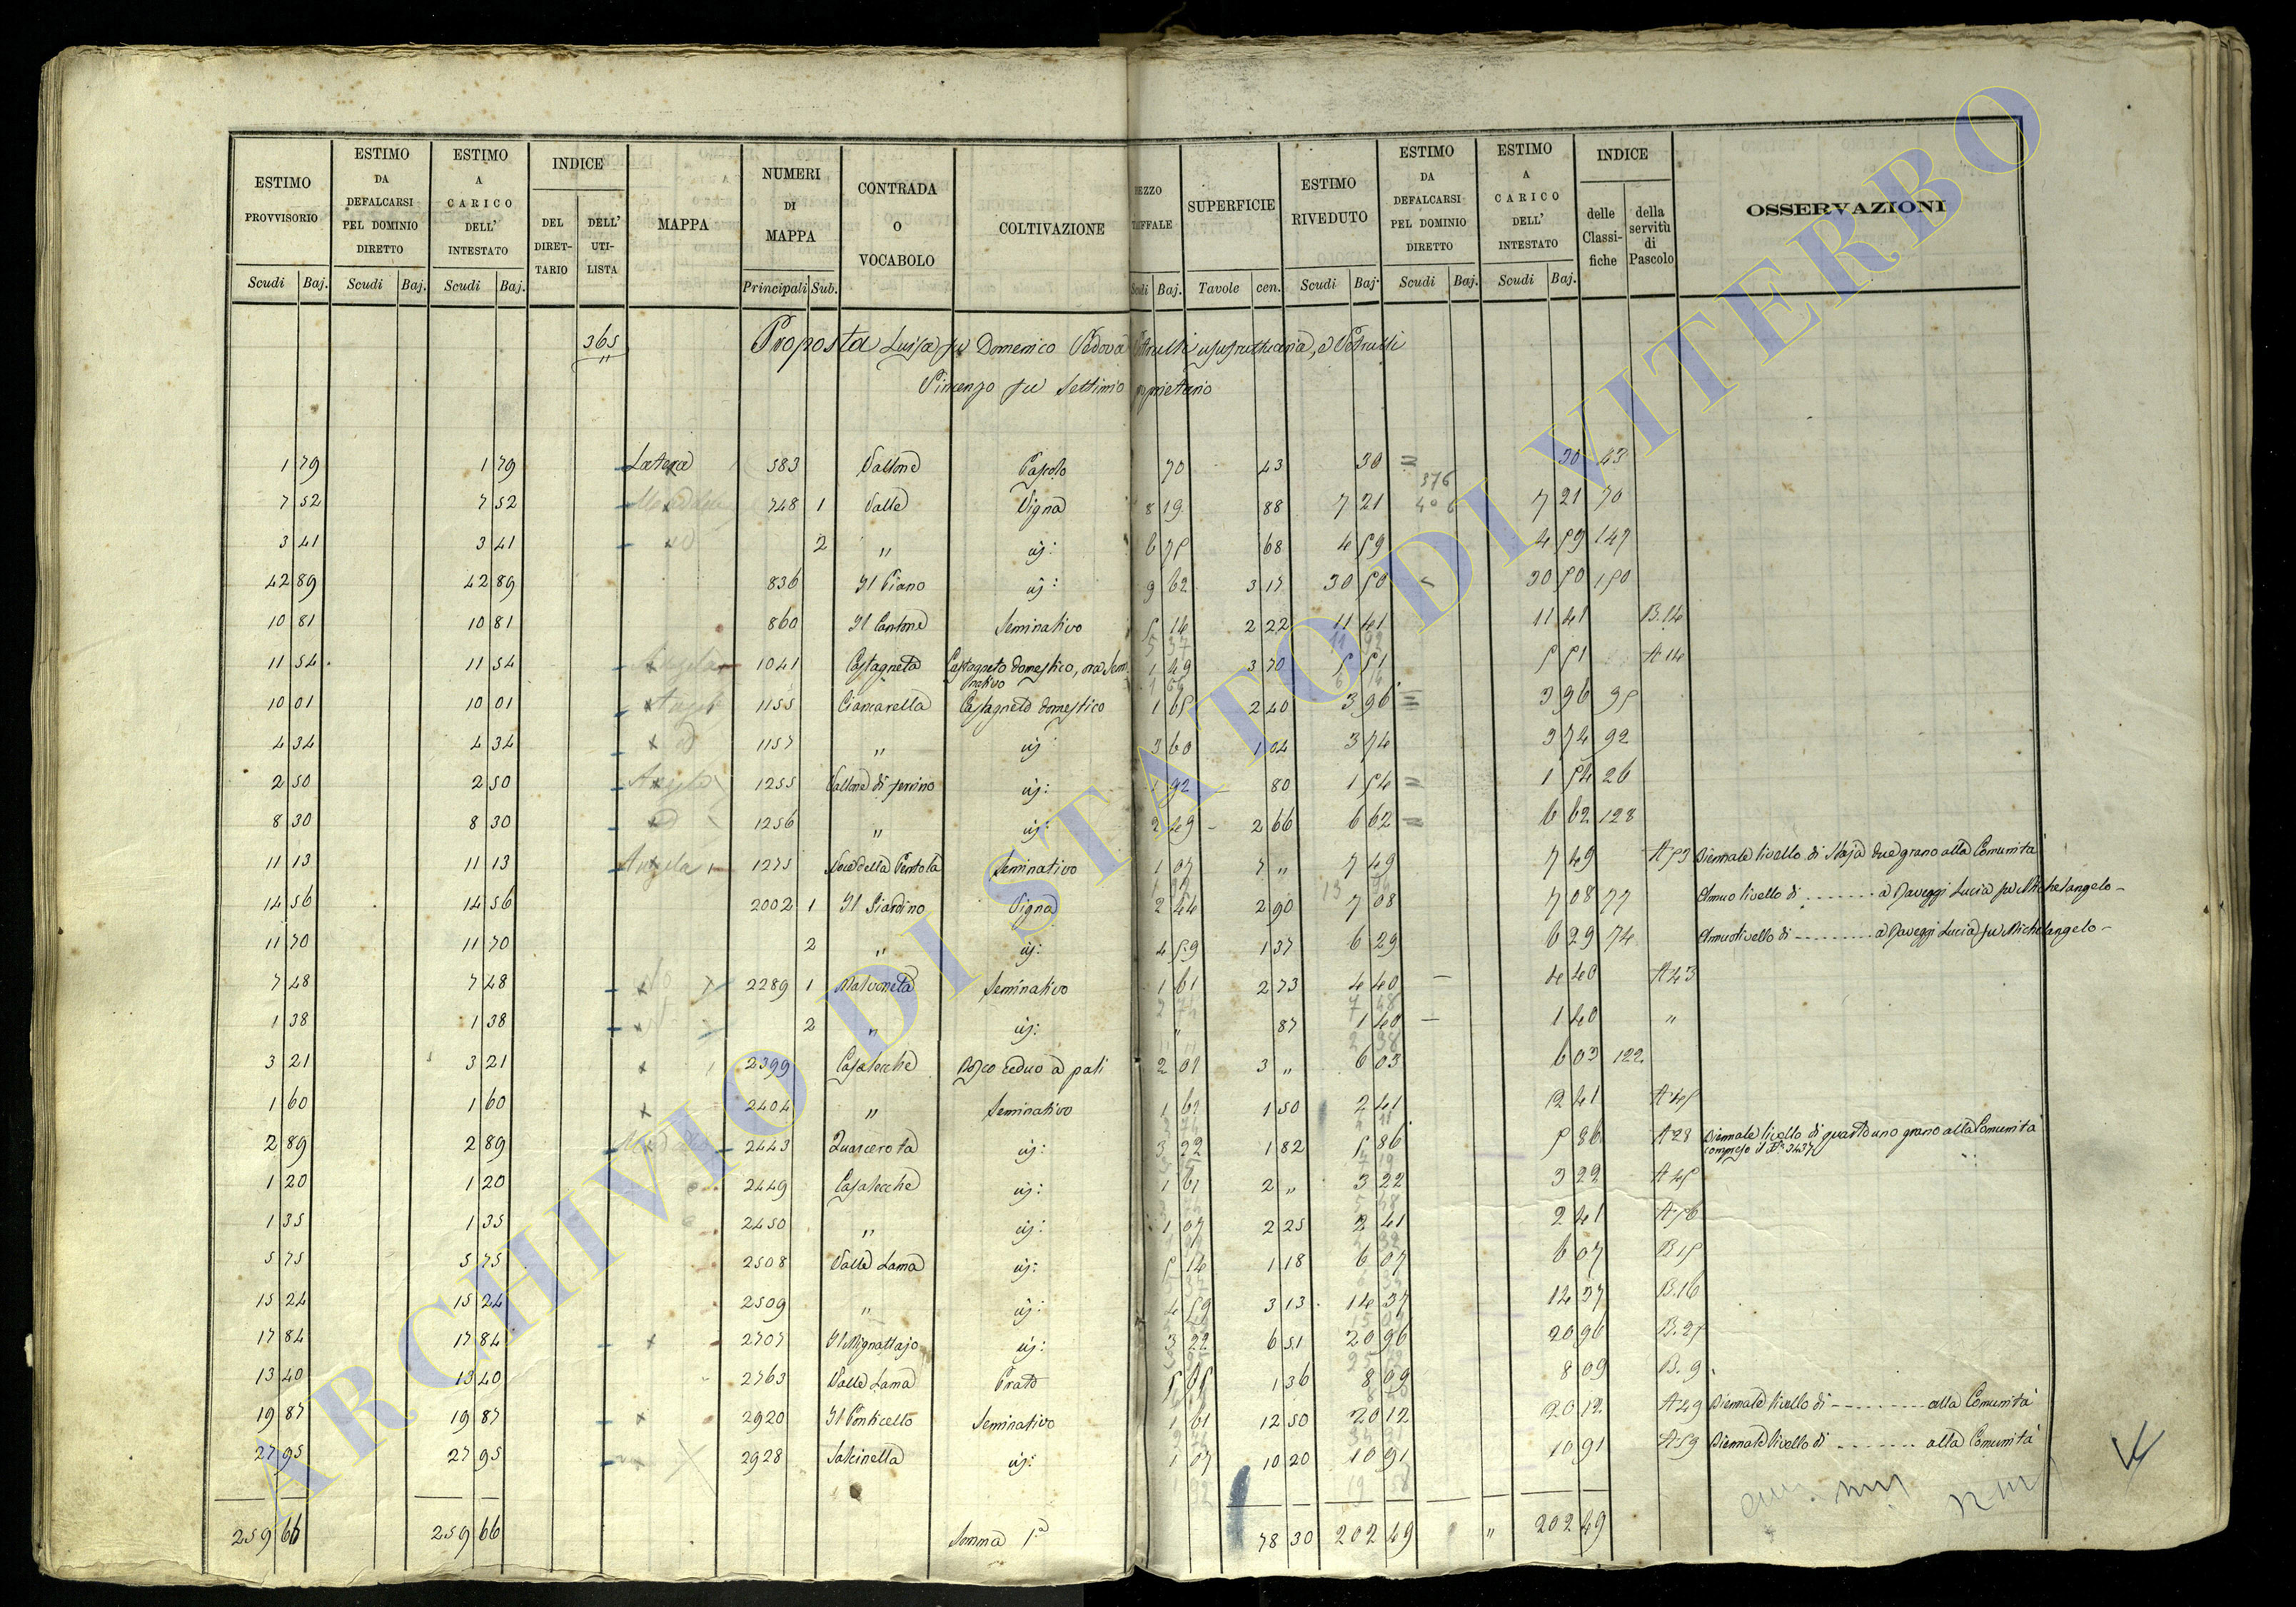 ESTIMO PROVVISORIO | ESTIMO DA DEFALCARSI PEL DOMINIO DIRETTO | ESTIMO A CARICO DELL' INTESTATO | INDICE | MAPPA | NUMERI DI MAPPA | CONTRADA O VOCABOLO | COLTIVAZIONE | REZZO TARIFFALE | SUPERFICIE | ESTIMO RIVEDUTO | ESTIMO DA DEFALCARSI PEL DOMINIO DIRETTO | ESTIMO A CARICO DELL' INTESTATO | INDICE | OSSERVAZIONI
DEL DIRET-TARIO | DELL' UTI-LISTA | delle Classi-fiche | della servitù di Pascolo
Scudi | Baj. | Scudi | Baj. | Scudi | Baj. | Principali | Sub. | Scudi | Baj. | Tavole | cen. | Scudi | Baj. | Scudi | Baj. | Scudi | Baj.
365 Proposta Luisa fu Domenico Vedova Petrulli usufruttuaria, e Petrulli
Vincenzo fu Settimio proprietario
1 79 | 1 79 | Latera | 583 | Vallone | Pascolo | 70 | 43 | 30 | 30 | 43
7 52 | 7 52 | 748 | 1 | Valle | Vigna | 8 19 | 88 | 7 21 | 7 21 | 70
3 41 | 3 41 | 2 | " | id: | 6 75 | 68 | 4 59 | 4 59 | 147
42 89 | 42 89 | 836 | Il Piano | id: | 9 62 | 3 17 | 30 50 | 30 50 | 150
10 81 | 10 81 | 860 | Il Cantone | Seminativo | 5 14 | 2 22 | 11 41 | 11 41 | B.14
11 54 | 11 54 | Angela | 1041 | Castagneta | Castagneto domestico, ora Seminativo | 1 49 | 3 70 | 5 51 | 5 51 | A 14
10 01 | 10 01 | 1155 | Ciancarella | Castagneto domestico | 1 65 | 2 40 | 3 96 | 3 96 | 95
4 34 | 4 34 | 1157 | " | id | 3 60 | 1 04 | 3 74 | 3 74 | 92
2 50 | 2 50 | 1255 | Vallone di | id: | 1 92 | 80 | 1 54 | 1 54 | 26
8 30 | 8 30 | 1256 | " | id: | 2 49 | 2 66 | 6 62 | 6 62 | 128
11 13 | 11 13 | Angela | 1275 | della Pentola | Seminativo | 1 07 | 7 " | 7 49 | 7 49 | A 53 | Biennale livello di Staja due grano alla Comunità
14 56 | 14 56 | 2002 | 1 | Il Giardino | Vigna | 2 44 | 2 90 | 7 08 | 7 08 | 77 | Annuo livello di ........ a Paveggi Lucia fu Michelangelo -
11 70 | 11 70 | 2 | " | id: | 4 59 | 1 37 | 6 29 | 6 29 | 74 | Annuo livello di ........ a Paveggi Lucia fu Michelangelo -
7 48 | 7 48 | 2289 | 1 | Malvoneta | Seminativo | 1 61 | 2 73 | 4 40 | 4 40 | A 43
1 38 | 1 38 | 2 | " | id: | " | 87 | 1 40 | 1 40 | "
3 21 | 3 21 | 2399 | Casalecche | Bosco ceduo a pali | 2 01 | 3 " | 6 03 | 6 03 | 122
1 60 | 1 60 | 2404 | " | Seminativo | 1 61 | 1 50 | 2 41 | 2 41 | A 45
2 89 | 2 89 | 2443 | Quarcerota | id: | 3 22 | 1 82 | 5 86 | 5 86 | A 28 | Biennale livello di quarto uno grano alla Comunità compreso il N° 3437
1 20 | 1 20 | 2449 | Casalecche | id: | 1 61 | 2 " | 3 22 | 3 22 | A 45
1 35 | 1 35 | 2450 | " | id: | 1 07 | 2 25 | 2 41 | 2 41 | A 56
5 75 | 5 75 | 2508 | Valle Lama | id: | 5 14 | 1 18 | 6 07 | 6 07 | B 15
15 24 | 15 24 | 2509 | " | id: | 4 59 | 3 13 | 14 37 | 14 37 | B.16
17 84 | 17 84 | 2707 | Il Mignattajo | id: | 3 22 | 6 51 | 20 96 | 20 96 | B.25
13 40 | 13 40 | 2763 | Valle Lama | Prato | 5 95 | 1 36 | 8 09 | 8 09 | B.9.
19 87 | 19 87 | 2920 | Il Ponticello | Seminativo | 1 61 | 12 50 | 20 12 | 20 12 | A 49 | Biennale livello di ........ alla Comunità
27 95 | 27 95 | 2928 | Salcinella | id: | 1 07 | 10 20 | 10 91 | 10 91 | A 59 | Biennale livello di ........ alla Comunità
259 66 | 259 66 | Somma 1ª | 78 30 | 202 49 | " | 202 49
ARCHIVIO DI STATO DI VITERBO